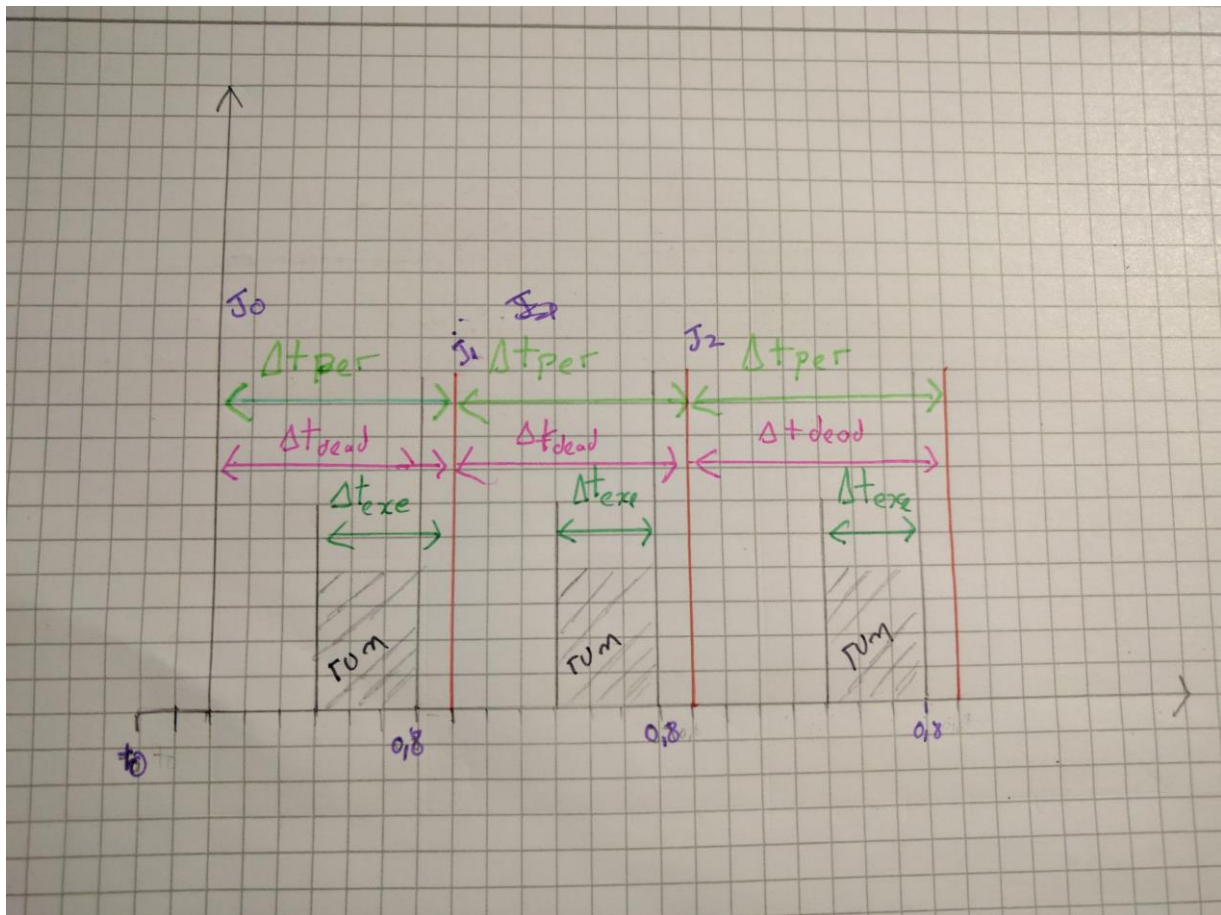 J0
J1
J2
Δtper
Δtper
Δtper
Δtdead
Δtdead
Δtdead
Δtexe
Δtexe
Δtexe
run
run
run
t0
0,8
0,8
0,8